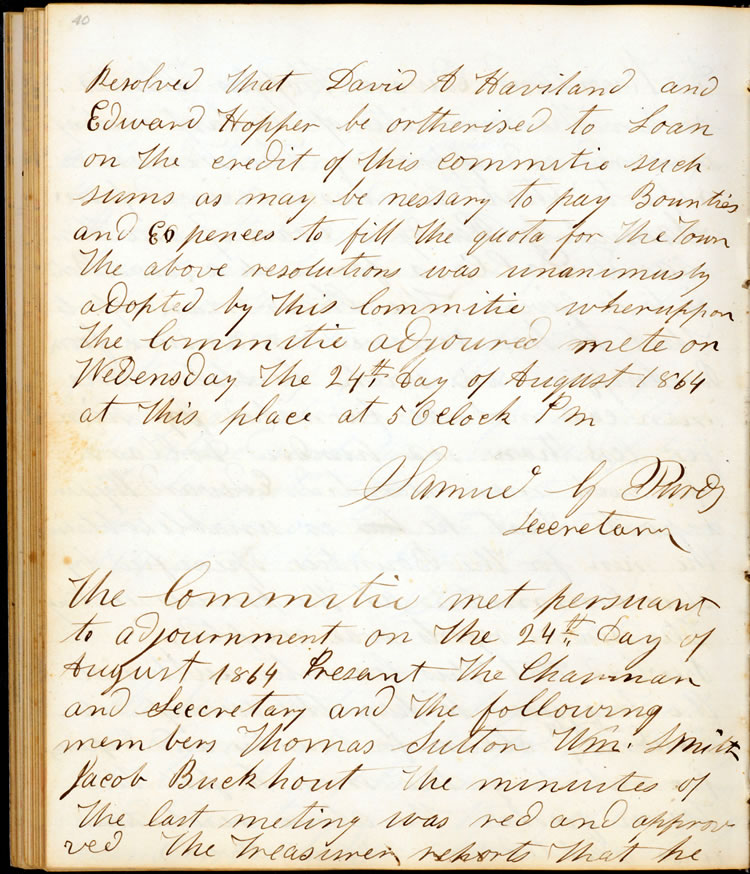 40
Resolved that David A Haviland and
Edward Hopper be ortherised to Loan
on the credit of this committie such
sums as may be nessary to pay Bounties
and Ex pences to fill the quota for the Town
The above resolutions was unanimusly
adopted by this Committie wheruppon
the Committie adjoured mete on
Wedensday the 24th Day of August 1864
at this place at 5 Oclock Pm
Samuel G Purdy
Seecretary
The Committie met persuant
to adjournment on the 24th Day of
August 1864 Presant the Chairman
and Seecretary and the following
members Thomas Sutton Wm. Smith
Jacob Buckhout the minuites of
the last meting was red and approv
ved the Treasurer reports that he